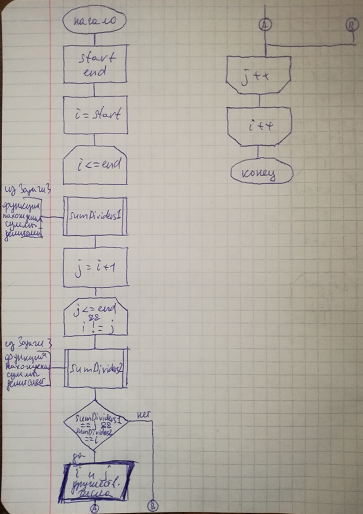 начало
start
end
i = start
i <= end
из Задачи 3
функция
нахождения
суммы
делителей
sumDividers1
j = i+1
j <= end
&&
i != j
из Задачи 3
функция
нахождения
суммы
делителей
sumDividers2
sumDividers1
== j &&
sumDividers2
== i
нет
да
i и j
дружеств.
числа
A
B
A
B
j ++
i ++
конец